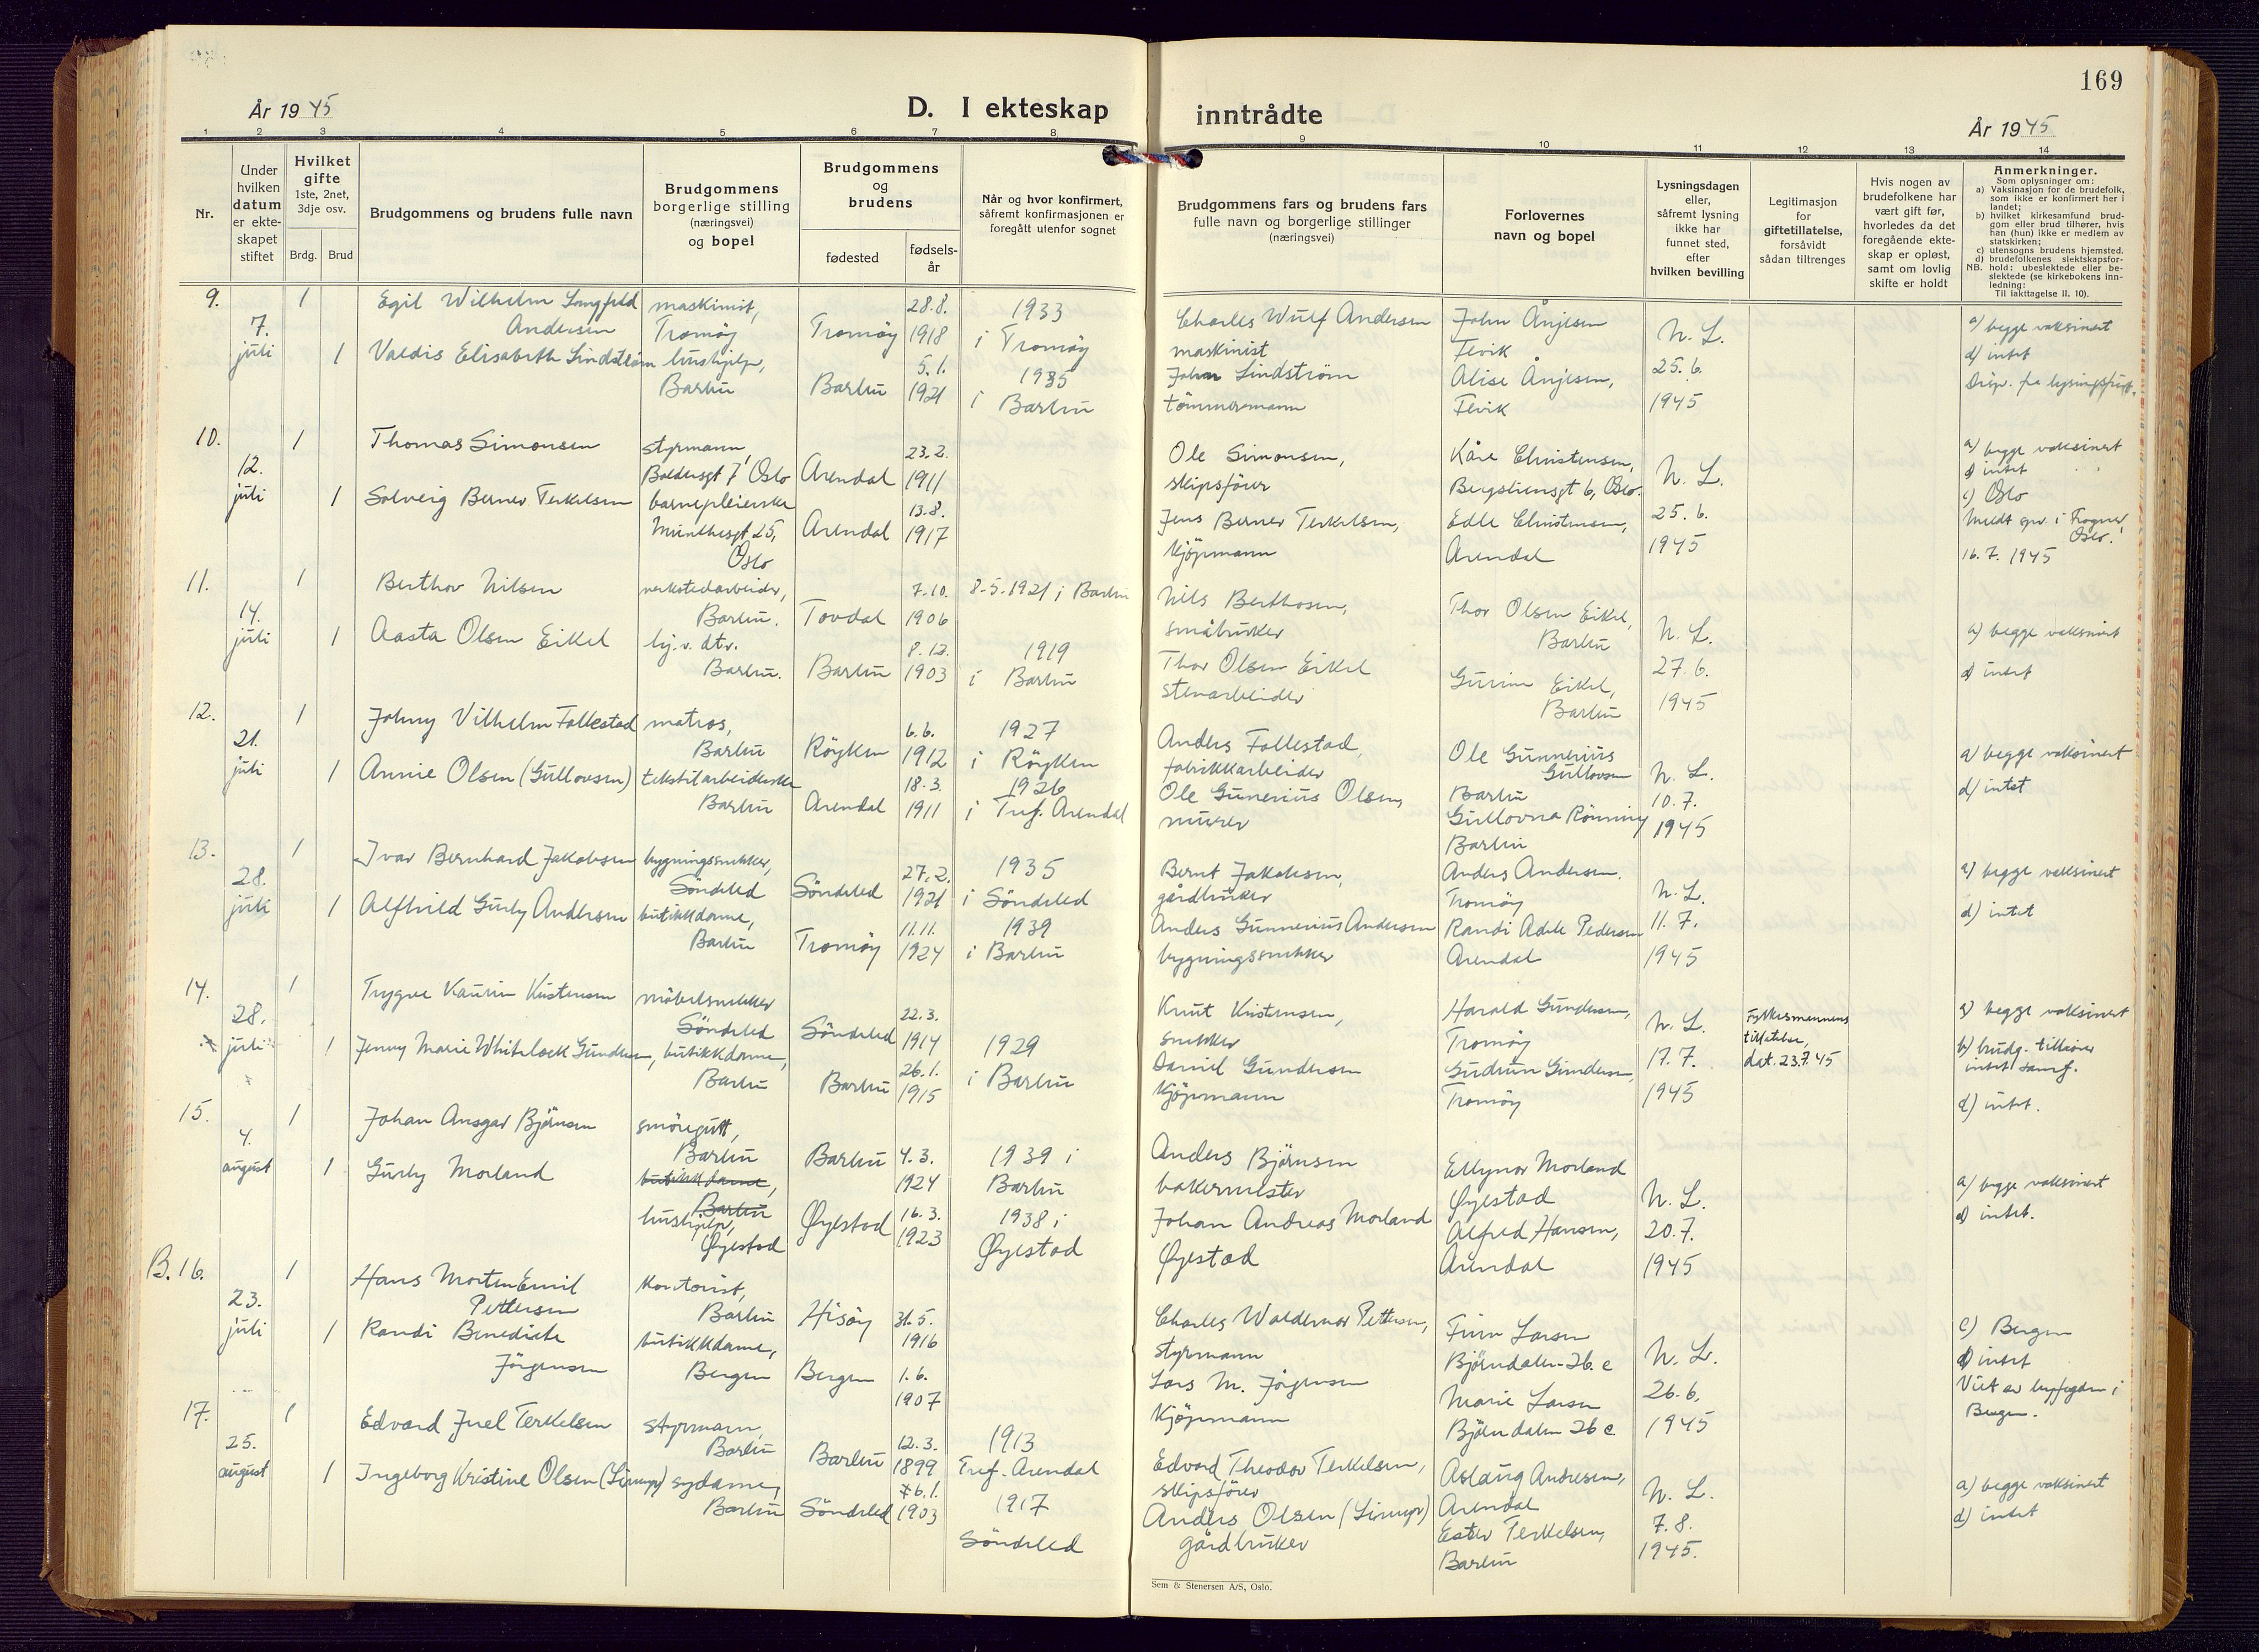 169
År 1945
D. I ekteskap
inntrådte
År 1945
1 2 3 4 5 6 7 8 9 10 11 12 13 14
Nr.
Under
hvilken
datum
er ekte-
skapet
stiftet
Hvilket
gifte
1ste, 2net,
3dje osv.
Brdg.
Brud
Brudgommens og brudens fulle navn
Brudgommens
borgerlige stilling
(næringsvei)
og bopel
Brudgommens
og
brudens
fødested
fødsels-
år
Når og hvor konfirmert,
såfremt konfirmasjonen er
foregått utenfor sognet
Brudgommens fars og brudens fars
fulle navn og borgerlige stillinger
(næringsvei)
Forlovernes
navn og bopel
Lysningsdagen
eller,
såfremt lysning
ikke har
funnet sted,
efter
hvilken bevilling
Legitimasjon
for
giftetillatelse,
forsåvidt
sådan tiltrenges
Hvis nogen av
brudefolkene har
vært gift før,
hvorledes da det
foregående ekte-
skap er opløst,
samt om lovlig
skifte er holdt
Anmerkninger.
Som oplysninger om:
a) Vaksinasjon for de brudefolk,
som ikke er konfirmert her i
landet;
b) hvilket kirkesamfund brud-
gom eller brud tilhører, hvis
han (hun) ikke er medlem av
statskirken;
c) utensogns brudens hjemsted.
d) brudefolkenes slektskapsfor-
hold: ubeslektede eller be-
slektede (se kirkebokens inn-
ledning:
NB.
Til iakttagelse II. 10).
9.
7.
juli
1
1
Egil Wilhelm Langfeld
Andersen
Valdis Elisabeth Lindström
maskinist,
Tromöy
hushjelp,
Barbu
Tromöy
Barbu
28.8.
1918
5.1.
1921
1933
i Tromöy
1935
i Barbu
Charles Wulf Andersen
maskinist
John Lindström
tömmermann
John Ånjesen
Fevik
Alise Ånjesen,
Fevik
N. L.
25.6.
1945
a) begge vaksinert
d) intet
Disp. fra lysningsfrist.
10.
12.
juli
1
1
Thomas Simonsen
Solveig Berner Terkelsen
styrmann,
Baldersgt 7 Oslo
barnepleierske
Munthesgt 25,
Oslo
Arendal
Arendal
23.2.
1911
13.8.
1917
Ole Simonsen,
skipsförer
Jens Berner Terkelsen,
kjöpmann
Kåre Christensen,
Bergsliensgt 6, Oslo.
Edle Christensen,
Arendal
N. L.
25.6.
1945
a) begge vaksinert
d) intet
c) Oslo
Meldt spr. i Frogner,
Oslo.
16.7.1945
11.
14.
juli
1
1
Berthor Nilsen
Aasta Olsen Eikel
verkstedarbeider,
Barbu.
hj.v. dtr.
Barbu.
Tovdal
Barbu
7.10.
1906
8.12.
1903
8.5.1921 i Barbu
1919
i Barbu
Nils Berthosen,
småbruker
Thor Olsen Eikel
stenarbeider
Thor Olsen Eikel,
Barbu
Gurine Eikel,
Barbu
N. L.
27.6.
1945
a) begge vaksinert
d) intet
12.
21.
juli
1
1
Johny Vilhelm Follestad
Annie Olsen (Gullovsen)
matros,
Barbu
tekstilarbeiderske
Barbu
Röyken
Arendal
6.6.
1912
18.3.
1911
1927
i Röyken
1926
i Tref. Arendal
Anders Follestad,
fabrikkarbeider
Ole Gunerius Olsen,
murer
Ole Gunnerius
Gullovsen
Barbu
Gullovna Rönning
Barbu
N. L.
10.7.
1945
a) begge vaksinert
d) intet
13.
28.
juli
1
1
Ivar Bernhard Jakobsen
Alfhild Gurly Andersen
bygningssnekker,
Söndeled
butikkdame,
Barbu
Söndeled
Tromöy
27.2.
1921
11.11.
1924
1935
i Söndeled
1939
i Barbu
Bernt Jakobsen,
gårdbruker
Anders Gunnerius Andersen
bygningssnekker
Anders Andersen.
Tromöy
Randi Adele Pedersen
Arendal
N. L.
11.7.
1945
a) begge vaksinert
d) intet
14.
28.
juli
1
1
Trygve Kaurin Kristensen
Jenny Marie Whitelock Gundersen,
möbelsnekker
Söndeled
butikkdame,
Barbu
Söndeled
Barbu
22.3.
1914
26.1.
1915
1929
i Barbu
Knut Kristensen,
snekker
Daniel Gundersen
kjöpmann
Harald Gundersen,
Tromöy
Gudrun Gundersen,
Tromöy
N. L.
17.7.
1945
Fylkesmannens
tillatelse,
dat. 23.7.45
a) begge vaksinert
b) brudg. tilhörer
intet samf.
d) intet.
15.
4.
august
1
1
Johan Ansgar Björnsen
Gurly Morland
smöregutt,
Barbu
butikkdame,
Barbu
hushjelp,
Øyestad
Barbu
Øyestad
4.3.
1924
16.3.
1923
1939 i
Barbu
1938 i
Øyestad
Anders Björnsen
bakermester
Johan Andreas Morland
Øyestad
Ellynor Morland
Øyestad
Alfred Hansen,
Arendal
N. L.
20.7.
1945
a) begge vaksinert
d) intet.
B. 16.
23.
juli
1
1
Hans Morten Emil
Pettersen
Randi Benedicte
Jörgensen
kontorist,
Barbu
butikkdame,
Bergen
Hisöy
Bergen
31.5.
1916
1.6.
1907
Charles Waldemar Pettersen,
styrmann
Lars M. Jörgensen
kjöpmann
Finn Larsen
Björndalen 26 c
Marie Larsen
Björndalen 26 c
N. L.
26.6.
1945
c) Bergen
d) intet
Viet av byfogden i
Bergen.
17.
25.
august
1
1
Edvard Juel Terkelsen
Ingeborg Kristine Olsen (Limyr)
styrmann,
Barbu
sydame,
Barbu
Barbu
Söndeled
12.3.
1899
6.1.
1903
1913
Tref. Arendal
1917
Söndeled
Edvard Theodor Terkelsen,
skipsförer
Anders Olsen (Limyr)
gårdbruker
Aslaug Andresen,
Arendal
Ester Terkelsen,
Barbu
N. L.
7.8.
1945.
a) begge vaksinert
d) intet
Sem & Stenersen A/S, Oslo.